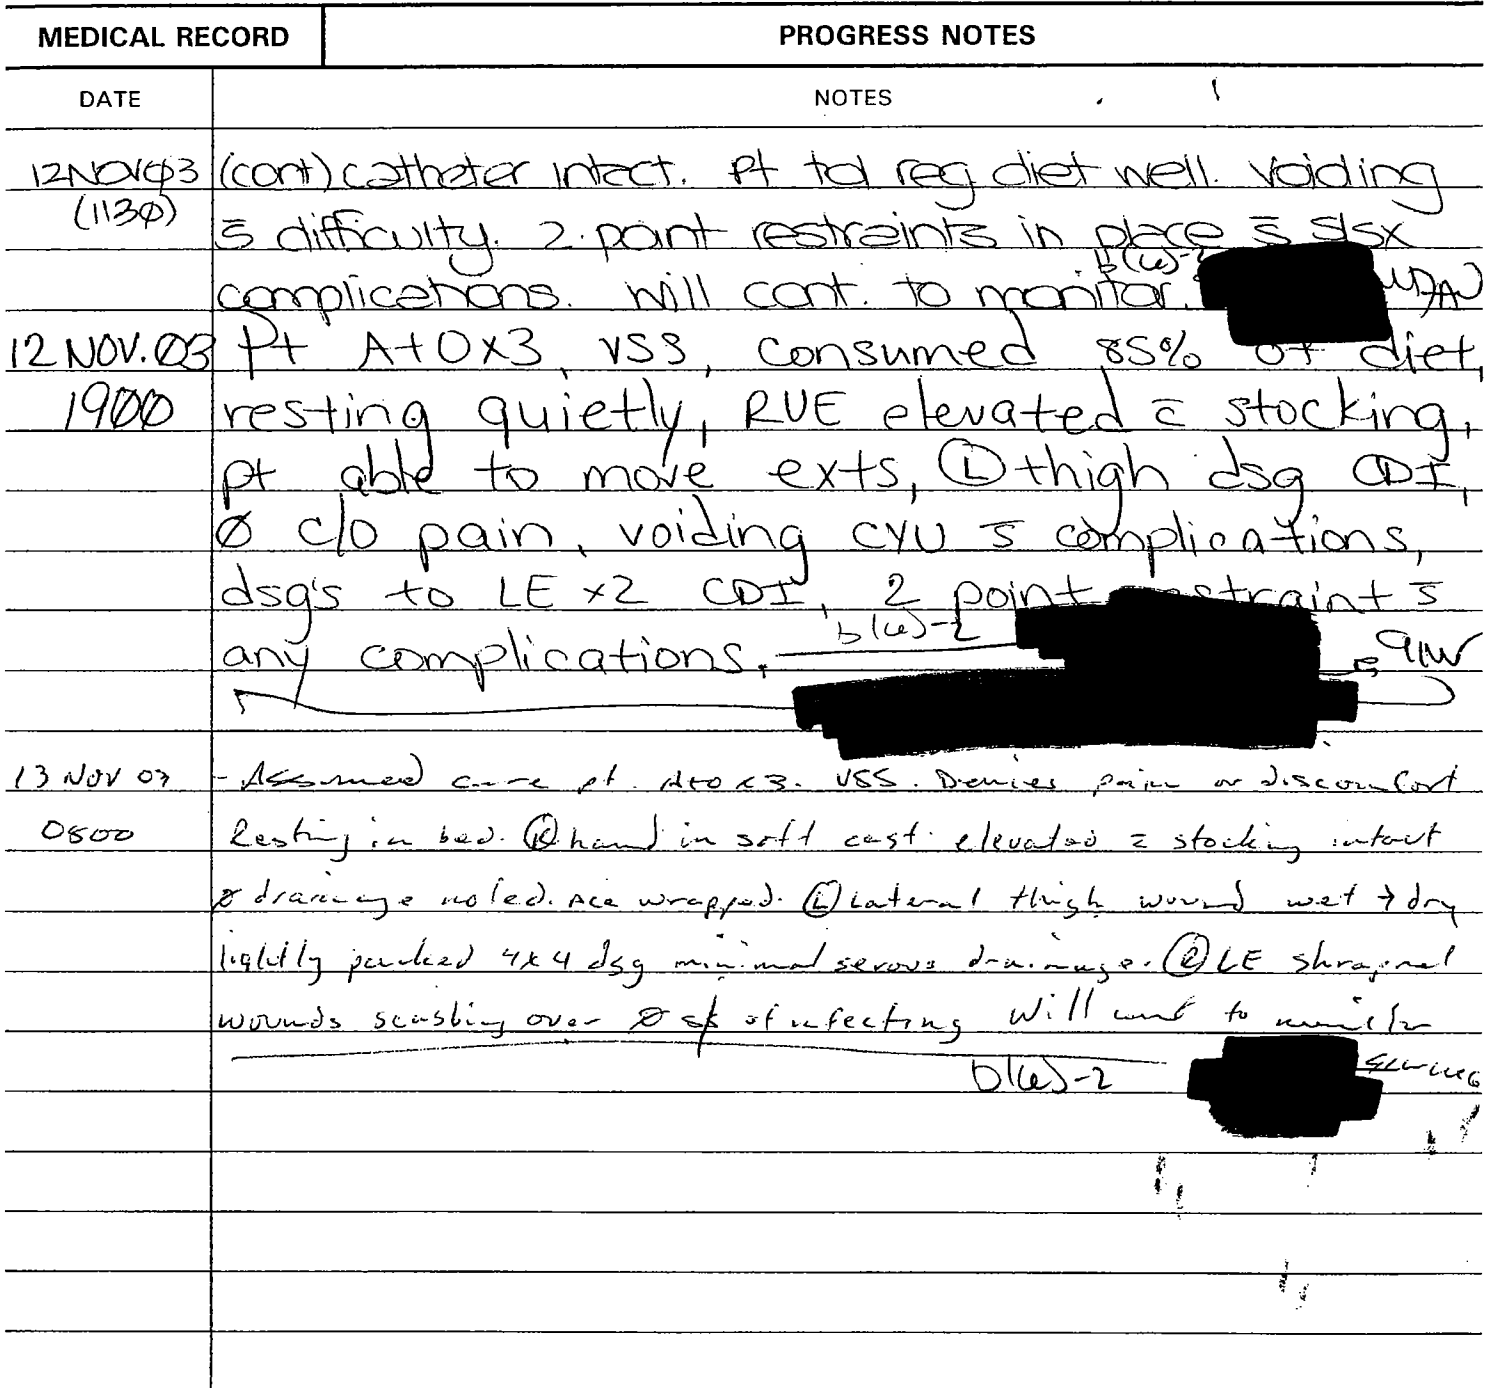 MEDICAL RECORD PROGRESS NOTES
DATE NOTES
12NOVØ3 (cont) catheter intact. Pt tol reg diet well. Voiding
(113Ø) s̄ difficulty. 2 point restraints in place s̄ s/sx
b(6)-2
complications. Will cont. to monitor.
12 NOV. Ø3 Pt A+O x3, VSS, consumed 85% of diet,
19ØØ resting quietly, RUE elevated c̄ stocking,
pt able to move exts, Ⓛ thigh dsg CDI,
Ø c/o pain, voiding CYU s̄ complications,
dsg's to LE x2 CDI, 2 point restraint s̄
any complications. b(6)-2
13 Nov 03 - Assumed care pt. A+O x3. VSS. Denies pain or discomfort
0800 Resting in bed. Ⓡ hand in soft cast elevated c̄ stocking intact
Ø drainage noted. Ace wrapped. Ⓛ Lateral thigh wound wet → dry
lightly packed 4x4 dsg minimal serous drainage. Ⓡ LE shrapnel
wounds scabbing over Ø s/s of infecting Will cont to monitor
b(6)-2